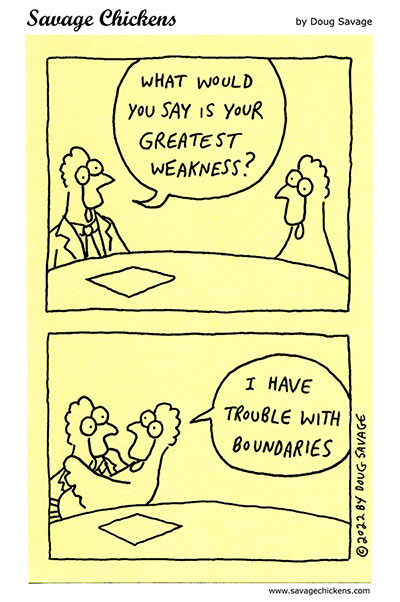 Savage Chickens
by Doug Savage
WHAT WOULD
YOU SAY IS YOUR
GREATEST
WEAKNESS?
I HAVE
TROUBLE WITH
BOUNDARIES
© 2022 BY DOUG SAVAGE
www.savagechickens.com